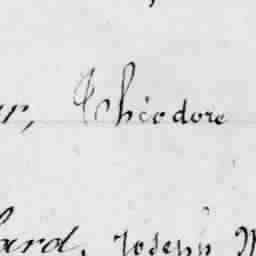 r, Theodore
ard, Joseph W